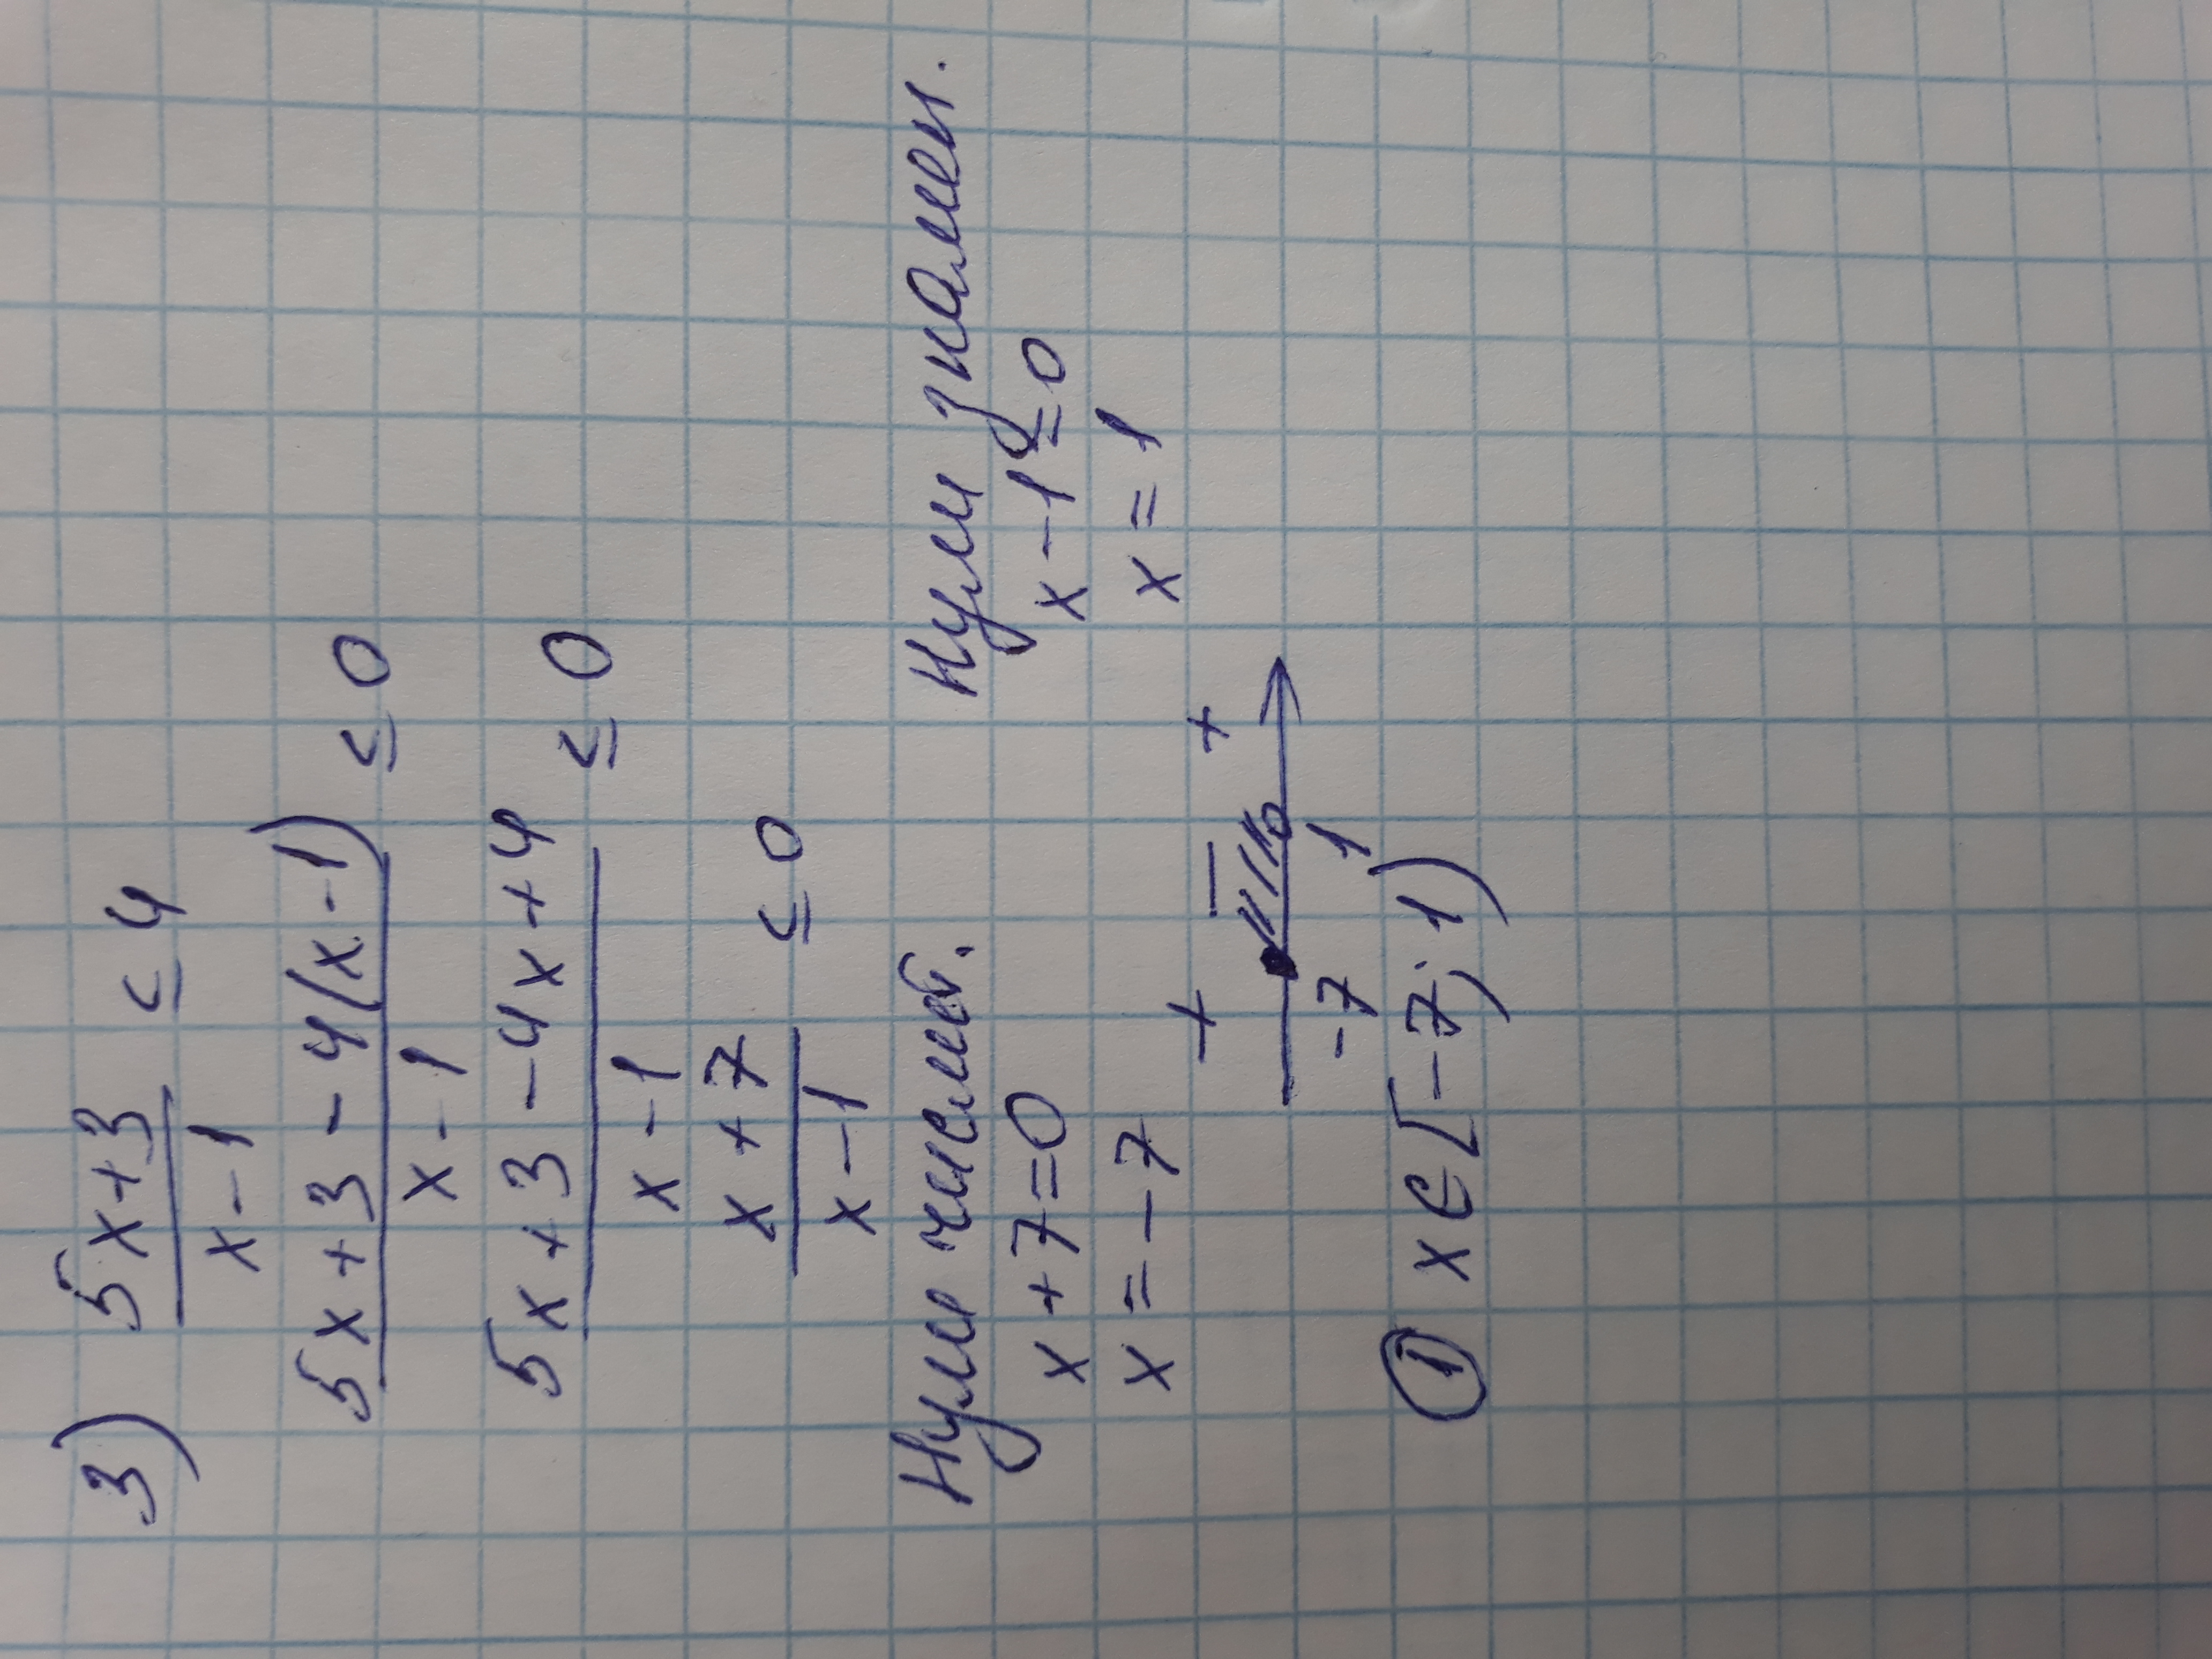 3) 5x+3
x-1 ≤ 4
5x+3-4(x-1)
x-1 ≤ 0
5x+3-4x+4
x-1 ≤ 0
x+7
x-1 ≤ 0
Нули числит. Нули знамен.
x+7=0 x-1=0
x=-7 x=1
+ - +
-7 1
① x∈[-7;1)